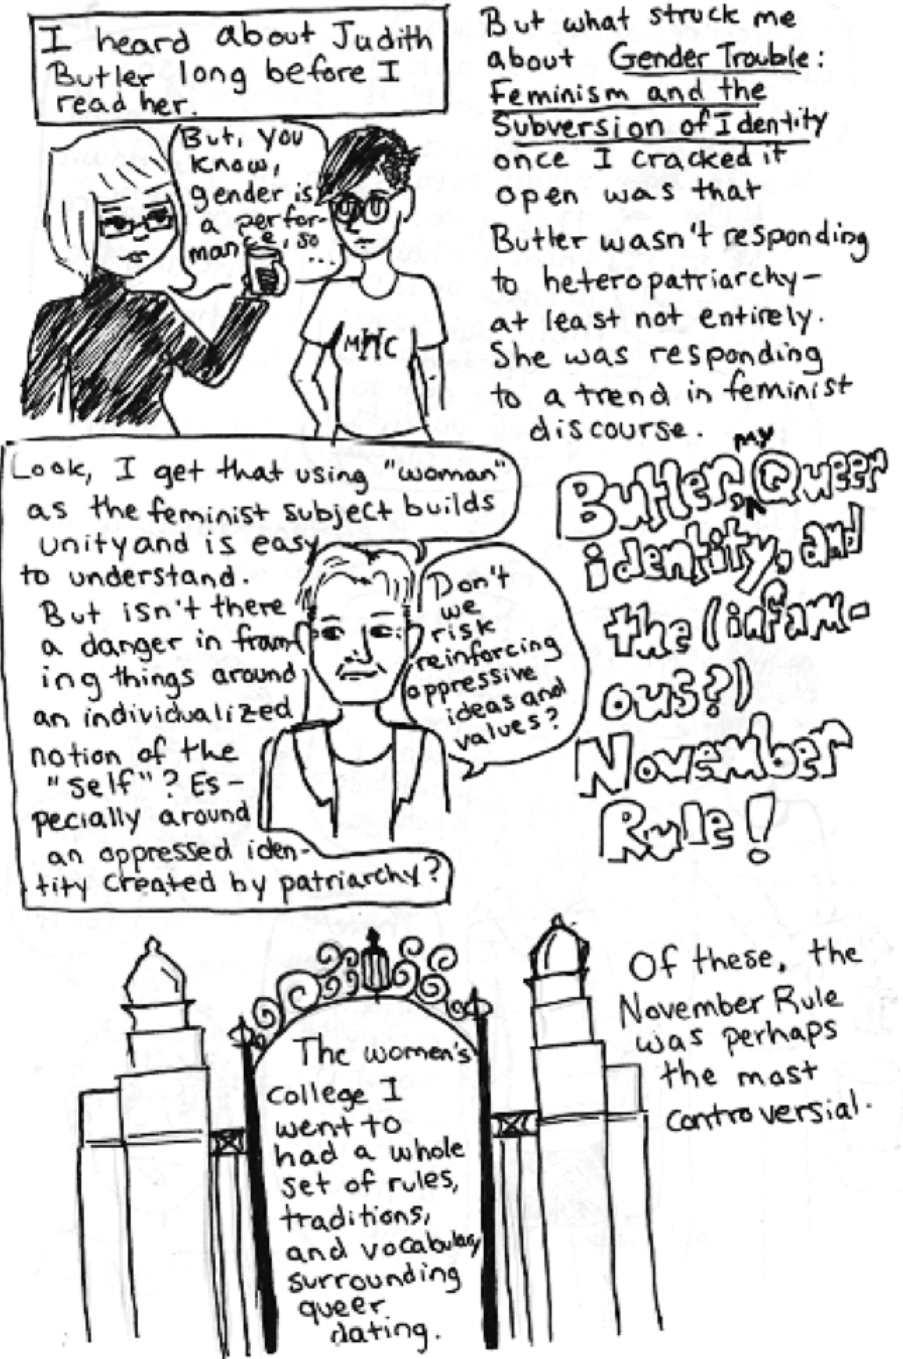 I heard about Judith
Butler long before I
read her.
But, you
know,
gender is
a perfor-
mance, so
...
MHC
But what struck me
about Gender Trouble:
Feminism and the
Subversion of Identity
once I cracked it
open was that
Butler wasn't responding
to heteropatriarchy—
at least not entirely.
She was responding
to a trend in feminist
discourse.
Look, I get that using "woman"
as the feminist subject builds
unity and is easy
to understand.
But isn't there
a danger in fram-
ing things around
an individualized
notion of the
"self"? Es-
pecially around
an oppressed iden-
tity created by patriarchy?
Don't
we
risk
reinforcing
oppressive
ideas and
values?
Butler, my Queer
identity, and
the (infam-
ous?)
November
Rule!
The women's
college I
went to
had a whole
set of rules,
traditions,
and vocabulary
surrounding
queer
dating.
Of these, the
November Rule
was perhaps
the most
controversial.